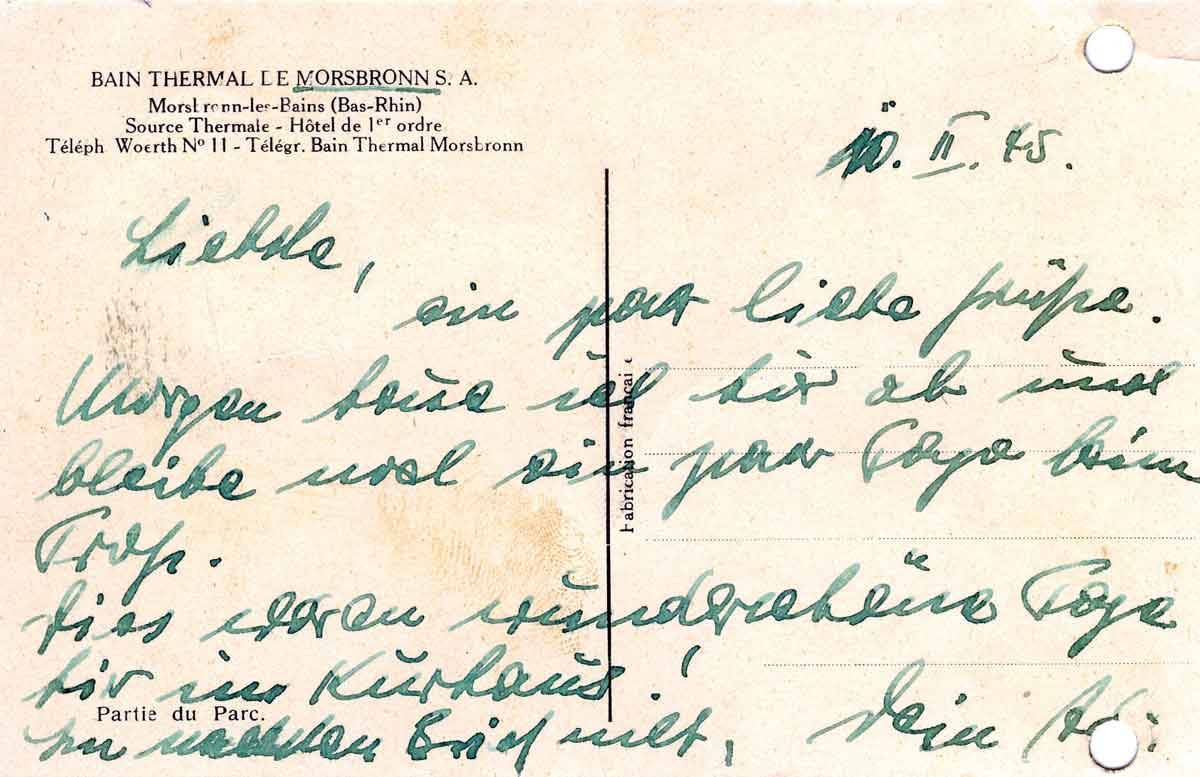 BAIN THERMAL DE MORSBRONN S. A.
Morsbronn-les-Bains (Bas-Rhin)
Source Thermale - Hôtel de 1er ordre
Téléph Woerth No 11 - Télégr. Bain Thermal Morsbronn
10. II. 45.
Liebste,
ein paar liebe Grüße.
Morgen haue ich hier ab und
bleibe noch ein paar Tage beim
Troß.
Dies waren wunderschöne Tage
hier im Kurhaus!
Im nächsten Brief mehr,
Dein
Partie du Parc.
Fabrication françai e